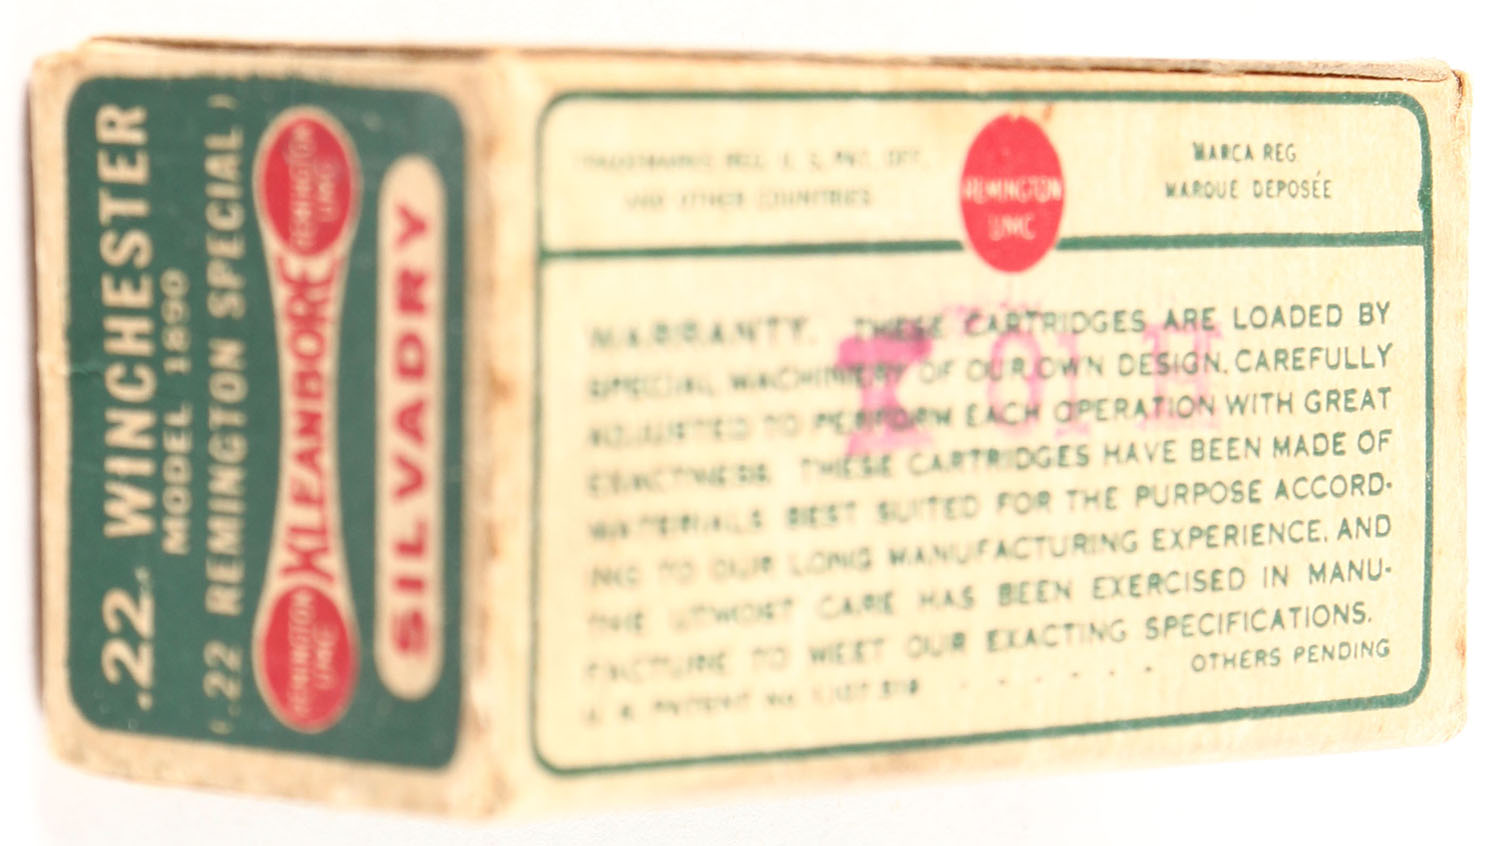 .22 WINCHESTER
MODEL 1890
(.22 REMINGTON SPECIAL)
REMINGTON
UMC
KLEANBORE
REMINGTON
UMC
SILVADRY
TRADEMARKS REG. U. S. PAT. OFF.
AND OTHER COUNTRIES
REMINGTON
UMC
MARCA REG.
MARQUE DEPOSÉE
WARRANTY. THESE CARTRIDGES ARE LOADED BY
SPECIAL MACHINERY OF OUR OWN DESIGN, CAREFULLY
ADJUSTED TO PERFORM EACH OPERATION WITH GREAT
EXACTNESS. THESE CARTRIDGES HAVE BEEN MADE OF
MATERIALS BEST SUITED FOR THE PURPOSE ACCORD-
ING TO OUR LONG MANUFACTURING EXPERIENCE, AND
THE UTMOST CARE HAS BEEN EXERCISED IN MANU-
FACTURE TO MEET OUR EXACTING SPECIFICATIONS.
U. S. PATENT No. - - - - - - OTHERS PENDING